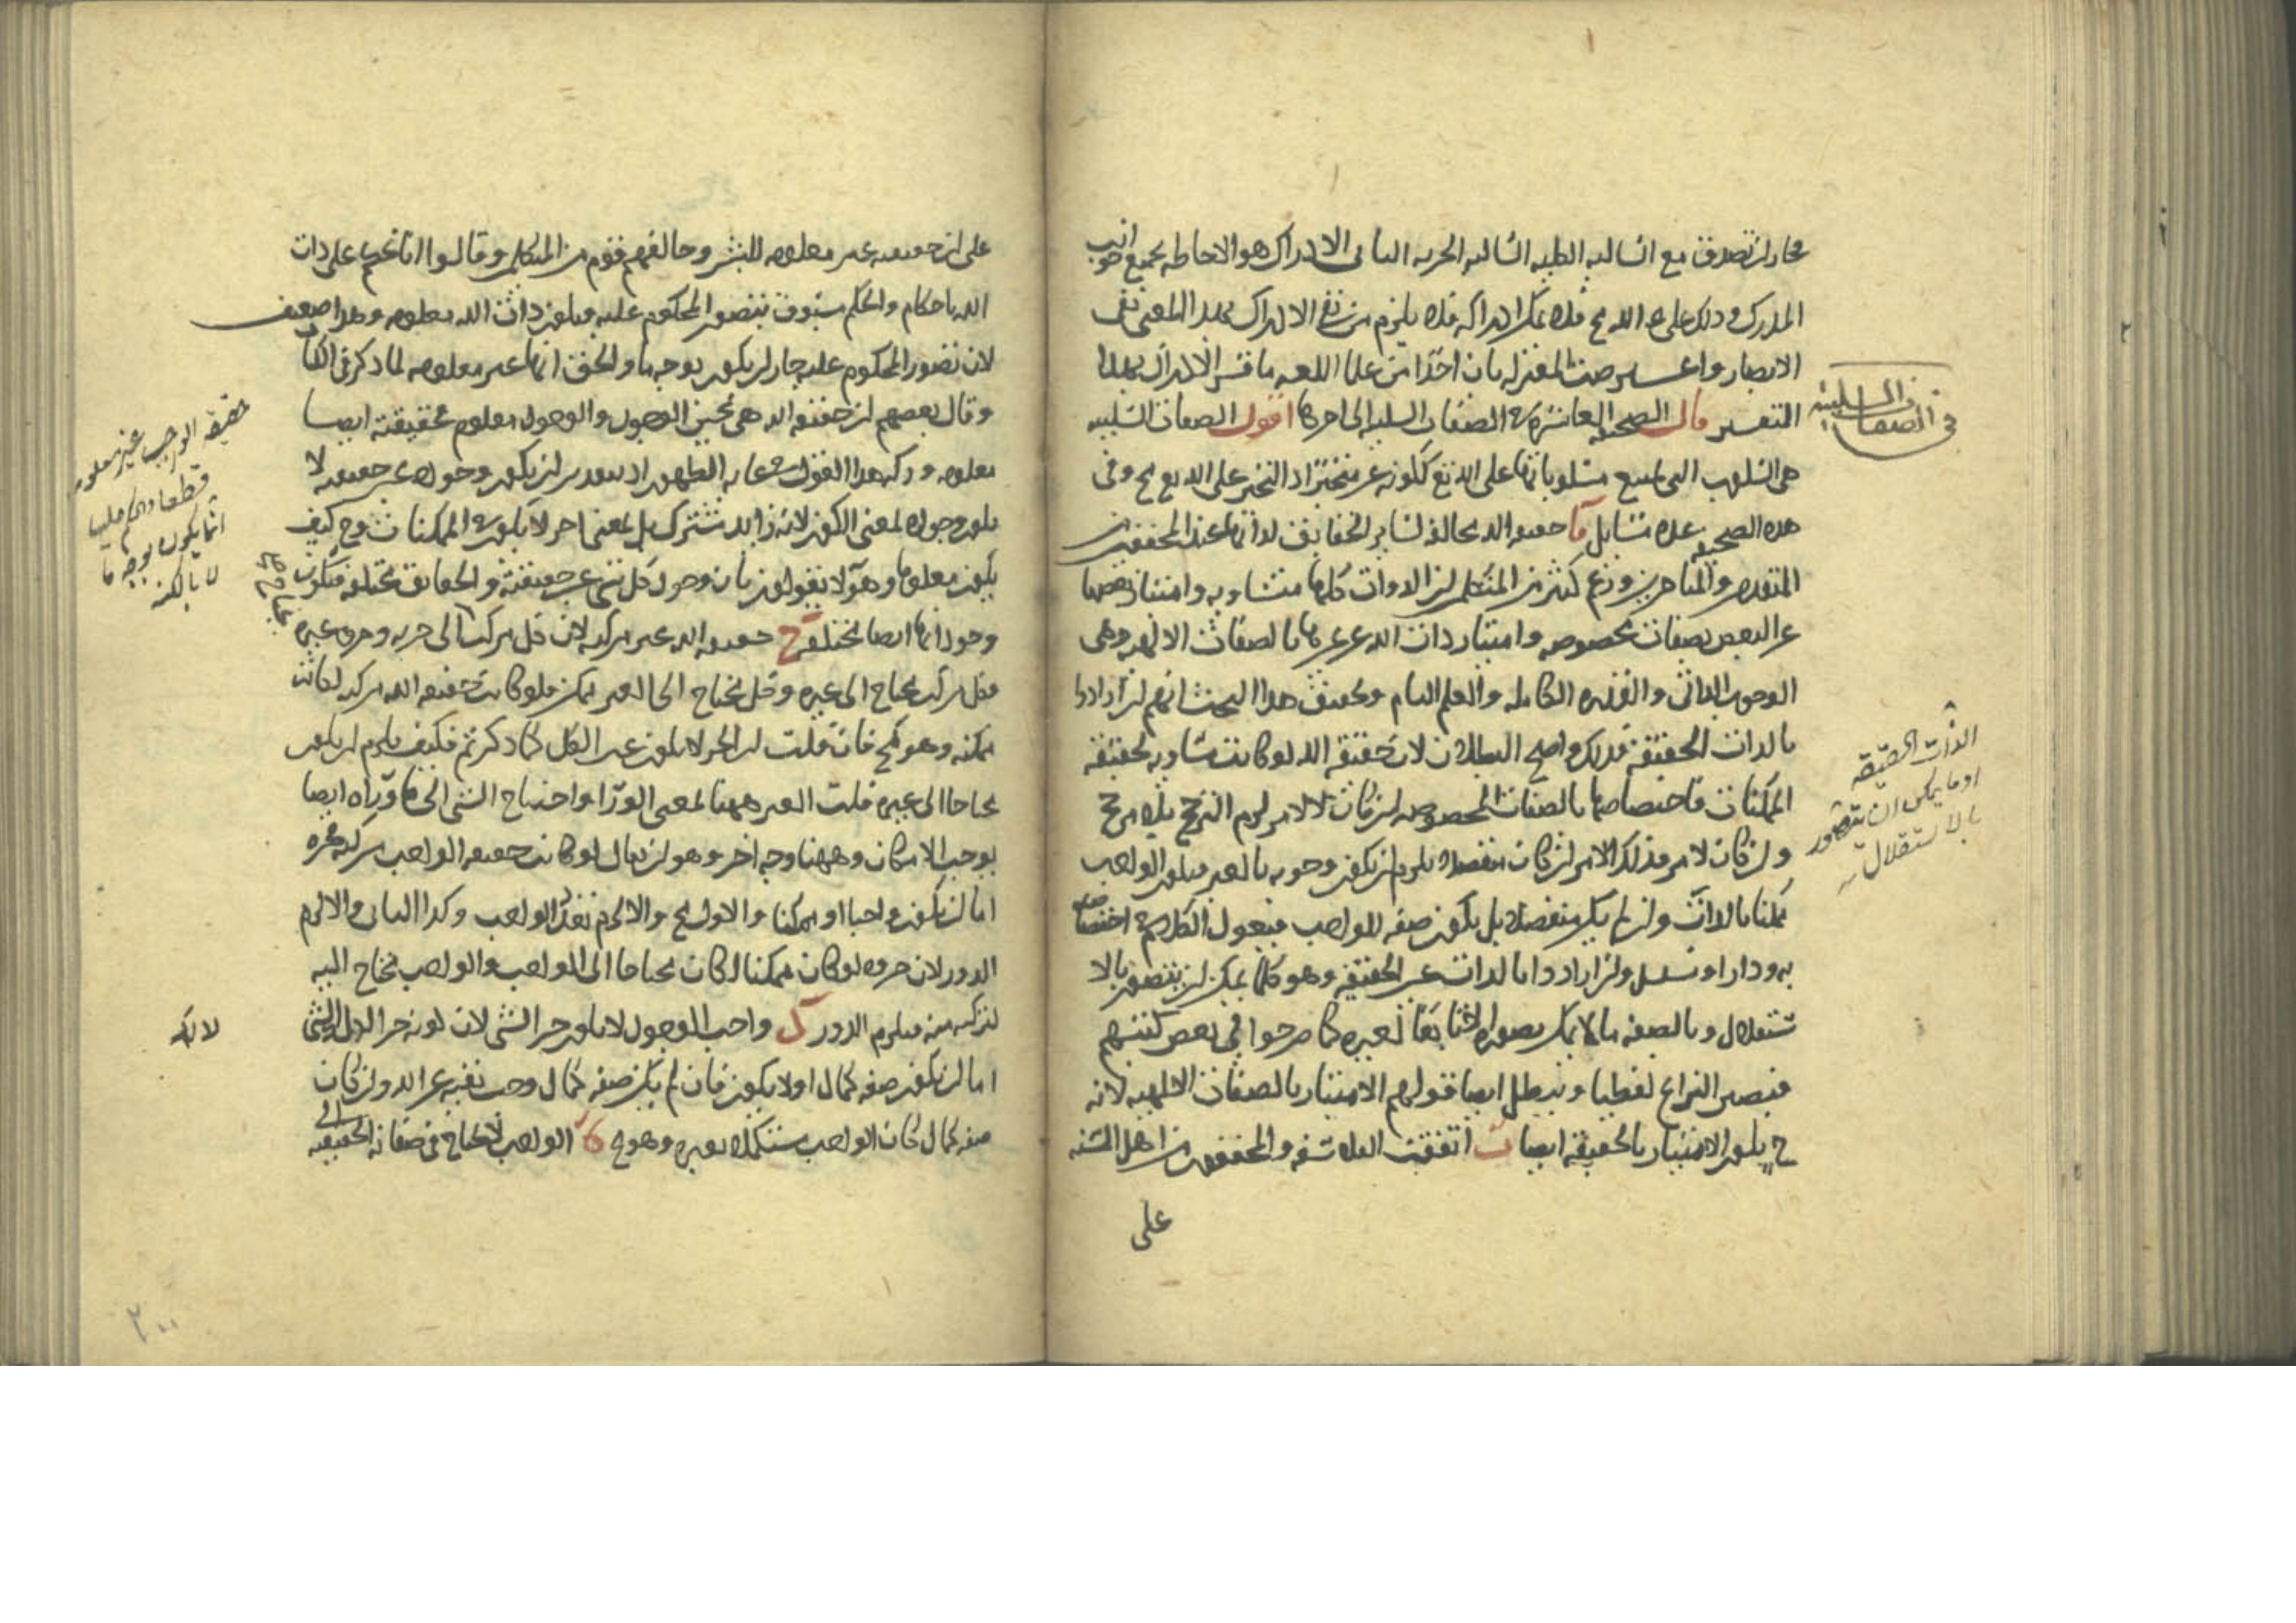 محاز ان تصدق مع السالبة الكلية السالبة الجزية الثانى الادراك هو الاحاطة بجميع جوانب
المدرك وذلك على الله مح فلا يمكن ادراكه فلا يلزم من نفى الادراك بهذا المعنى نفى
الابصار المعتزلة بان احدا من علما اللغة ما فسر الادراك بهذا
التفسير قال الصحيفة العاشرة فى الصفات السلبية الى اخرها اقول الصفات السلبية
هى السلوب التى يمتنع مسلوباتها على الله تع ككونه غير متحيز اذ التحيز على الله تع مح وفى
هذه الصحيفة عدة مسايل آ حقيقة الله مخالفة لساير الحقايق لذاتها عند المحققين من
المتقدمين والمتاخرين وزعم كثير من المتكلمين ان الذوات كلها متساوية وامتياز بعضها
عن البعض بصفات مخصوصة وامتياز ذات الله عن غيرها بالصفات الالهية وهى
الوجوب الذاتى والقدرة الكاملة والعلم التام وتحقيق هذا البحث انهم ان ارادوا
بالذات الحقيقة فذلك واضح البطلان لان حقيقة الله لو كانت مساوية لحقيقة
الممكنات فاختصاصها بالصفات المخصوصة ان كان لا لامر لزم الترجح بلا مرجح
وان كان لامر فذلك الامر ان كان منفصلا يلزم ان يكون وجوبه بالغير فيكون الواجب
ممكنا بالذات وان لم يكن منفصلا بل يكون صفة للواجب فنقول الكلام فى اختصاصه
به ودار او تسلسل وان ارادوا بالذات غير الحقيقة وهو كلما يمكن ان يتصور بالا
ستقلال وبالصفة ما لا يمكن تصوره الا تابعا لغيره كما صرحوا فى بعض كتبهم
فيصير النزاع لفظيا ويبطل ايضا قولهم الامتياز بالصفات الالهية لانه
ح يكون الامتياز بالحقيقة ايضا ب اتفقت الفلاسفة والمحققون من اهل السنة
على
فى الصفات السلبية
الذات الحقيقة
او ما يمكن ان يتصور
بالاستقلال
على ان حقيقته غير معلومة للبشر وخالفهم قوم من المتكلمين وقالوا انا نحكم على ذات
الله باحكام والحكم مسبوق بتصور المحكوم عليه فيكون ذات الله معلومة وهذا ضعيف
لان تصور المحكوم عليه جاز ان يكون بوجه ما والحق انها غير معلومة لما ذكر فى الكتاب
وقال بعضهم ان حقيقة الله هى محض الوجود والوجود معلوم فحقيقته ايضا
معلومة وركة هذا القول فى غاية الظهور اذ بتقدير ان يكون وجوده عين حقيقته لا
يكون وجوده لمعنى الكون لانه زايد مشترك بل لمعنى اخر لا يكون فى الممكنات وح كيف
يكون معلوما وهولا يقولون بان وجود كل شى عين حقيقته والحقايق مختلفة فيكون
وجوداتها ايضا مختلفة ج حقيقة الله غير مركبة لان كل مركب محتاج الى جزيه وجزوه غيره
فكل مركب محتاج الى غيره وكل محتاج الى الغير ممكن فلو كانت حقيقة الله مركبة لكانت
ممكنة وهو مح فان قلت ان الجزء لا يكون غير الكل كما ذكرتم فكيف يلزم ان يكون
محتاجا الى غيره قلت الغير ههنا لمعنى الورا واحتياج الشى الى ما وراه ايضا
يوجب الامكان وههنا وجه اخر وهو ان يقال لو كانت حقيقة الواجب مركبة فجزوه
اما ان يكون واجبا او ممكنا والاول مح والا لزم تعدد الواجب وكذا الثانى والا لزم
الدور لان جزوه لو كان ممكنا لكان محتاجا الى الواجب والواجب محتاج اليه
لتركبه منه فيلزم الدور د واجب الوجود لا يكون جزا لشى لان كونه جزا لذلك الشى
اما ان يكون صفة كمال او لا يكون فان لم يكن صفة كمال وجب نفيه عن الله وان كان
صفة كمال كان الواجب مستكملا بغيره وهو مح ه الواجب لا يحتاج فى صفاته الحقيقية
حقيقة الواجب غير معلومة
قطعا والحكم عليها
انما يكون بوجه ما
لا بالكنه